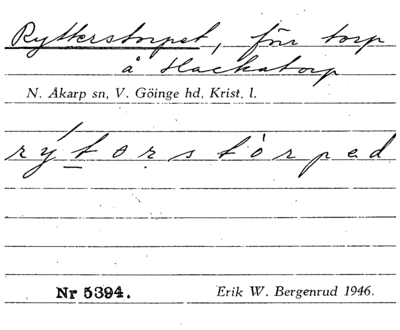 Rytterstorpet, förr torp
å Hackatorp
N. Åkarp sn, V. Göinge hd, Krist. l.
rýtorstòrpad
Nr 5394. Erik W. Bergenrud 1946.